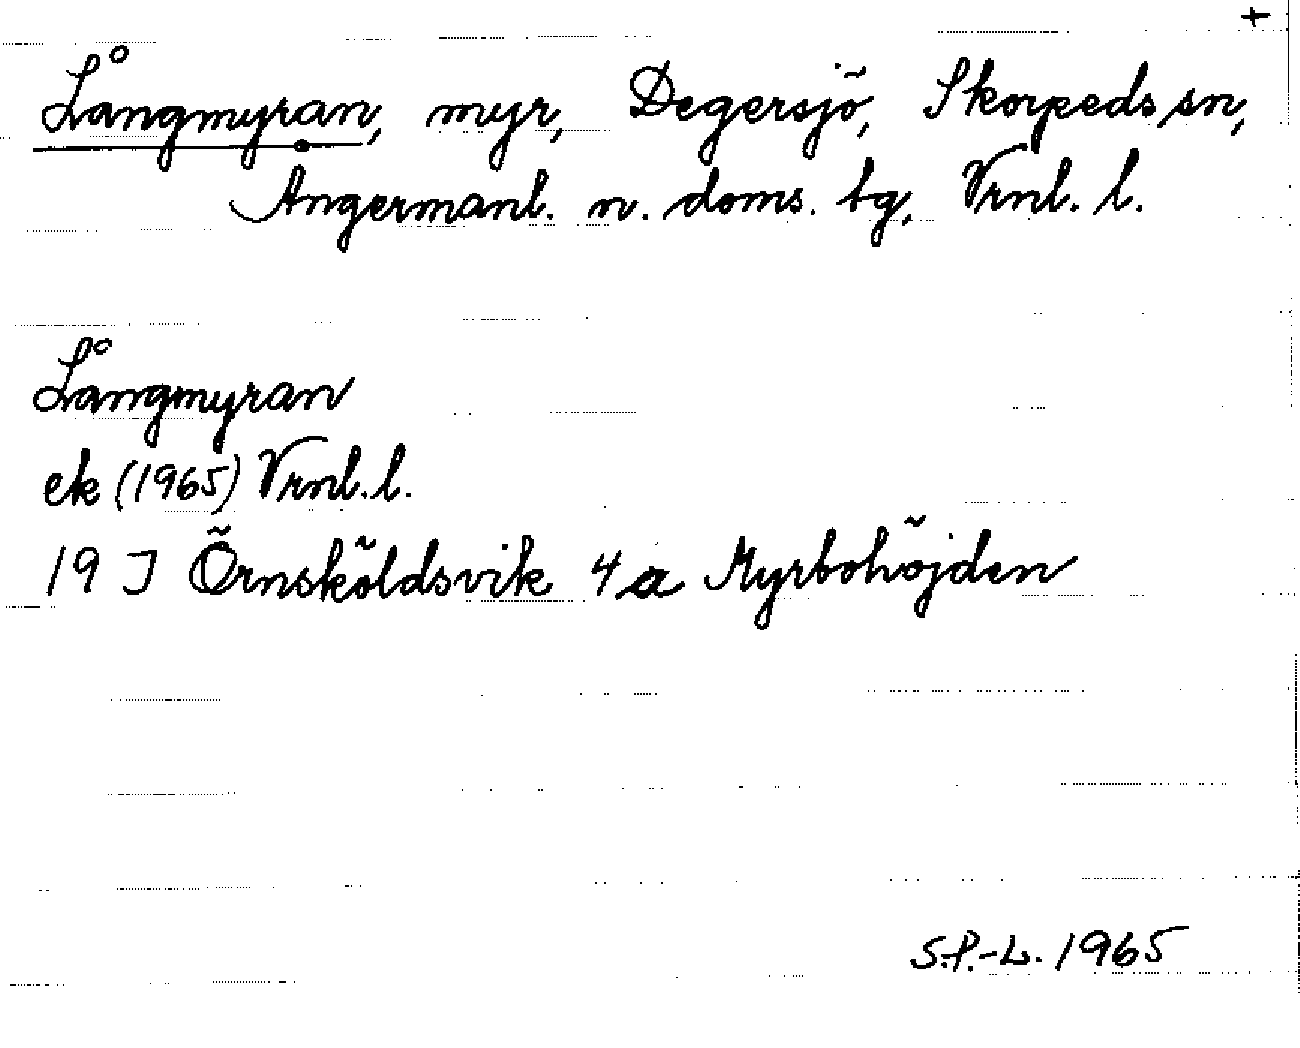 +
Långmyran, myr, Degersjö, Skorpeds sn,
Ångermanl. n. doms. tg, Vrnl. l.
Långmyran
ek (1965) Vrnl. l.
19 J Örnsköldsvik 4 a Myrbohöjden
S.P.-L. 1965